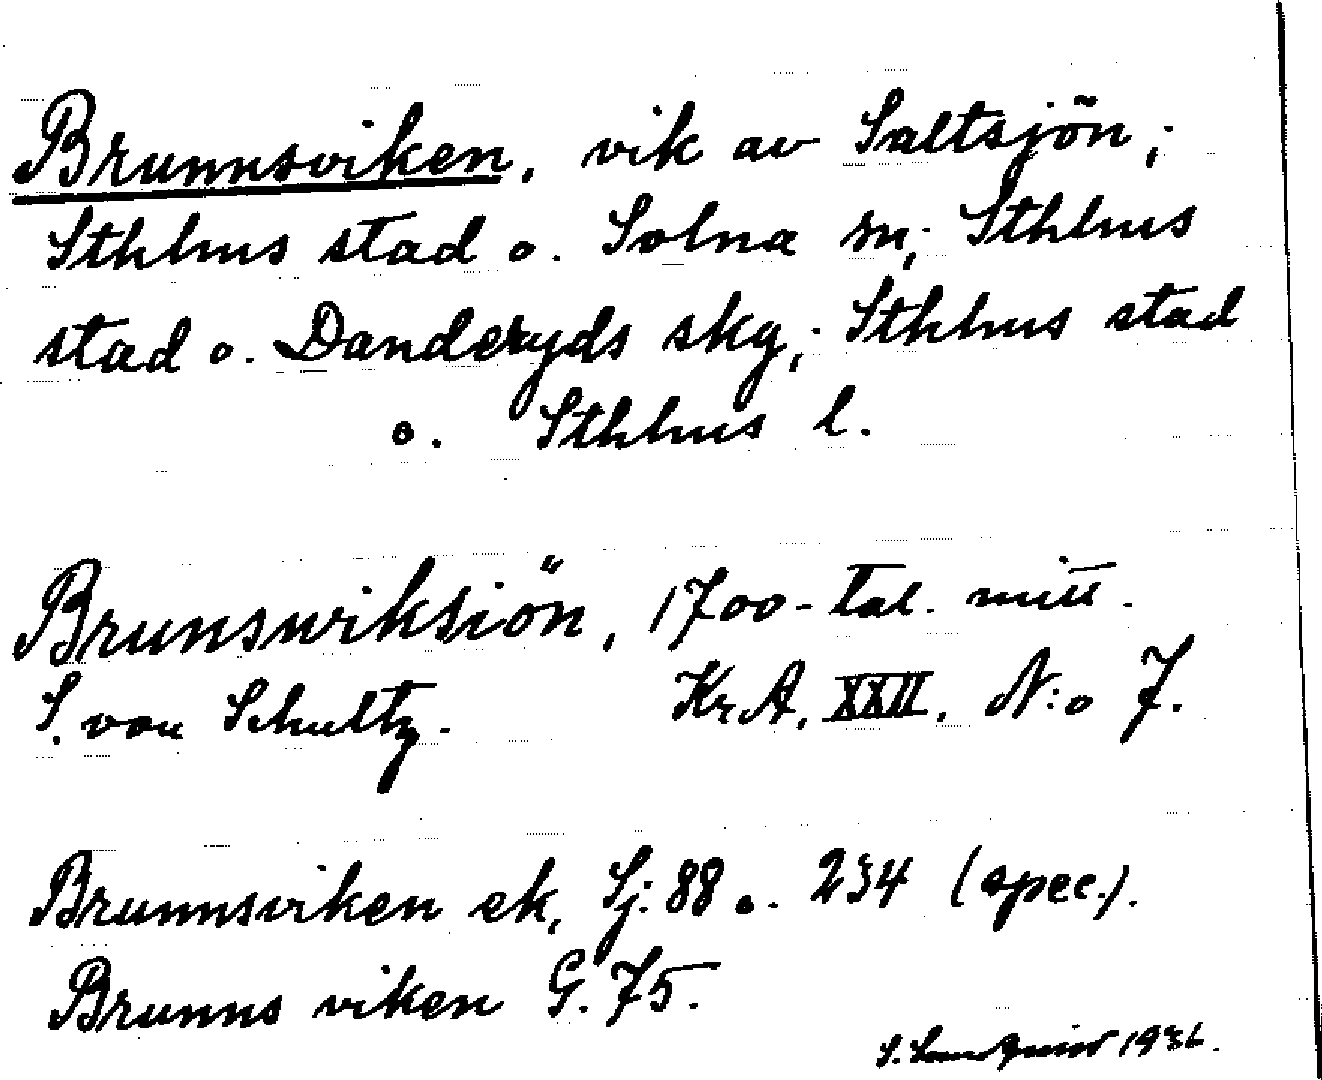 Brunnsviken, vik av Saltsjön;
Sthlms stad o. Solna sn; Sthlms
stad o. Danderyds skg; Sthlms stad
o. Sthlms l.
Brunswiksiön, 1700-tal. mitt.
S. von Schultz. KrA. XXII. N:o 7.
Brunnsviken ek, Sj: 88 o. 234 (spec.).
Brunns viken G. 75.
1936.